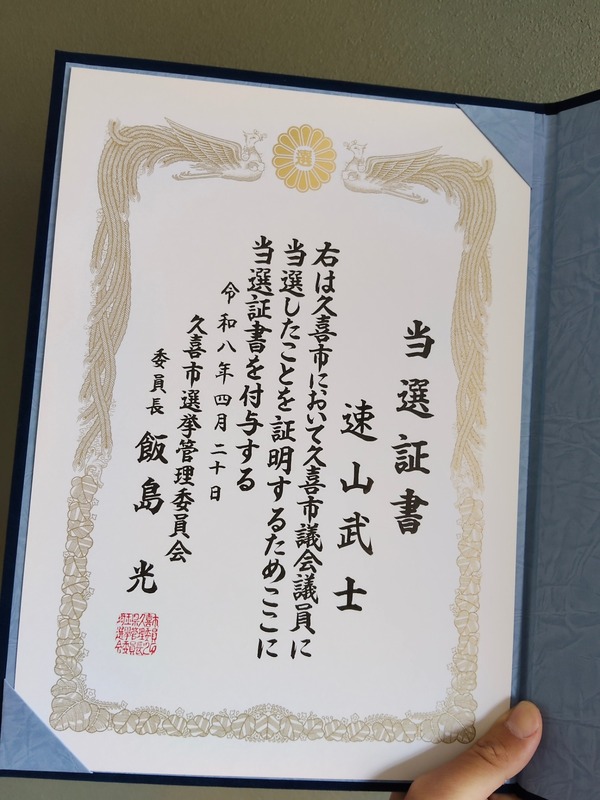 選
当選証書
速山武士
右は久喜市において久喜市議会議員に
当選したことを証明するためここに
当選証書を付与する
令和八年四月二十日
久喜市選挙管理委員会
委員長 飯島光